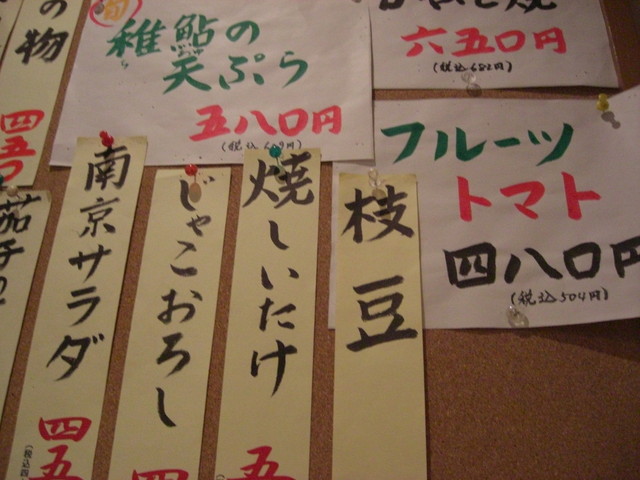 旬
稚鮎の
天ぷら
五八〇円
(税込609円)
六五〇円
(税込682円)
フルーツ
トマト
四八〇円
(税込504円)
枝豆
焼しいたけ
五
じゃこおろし
四
南京サラダ
四五
(税込四
の物
四五
茄子の